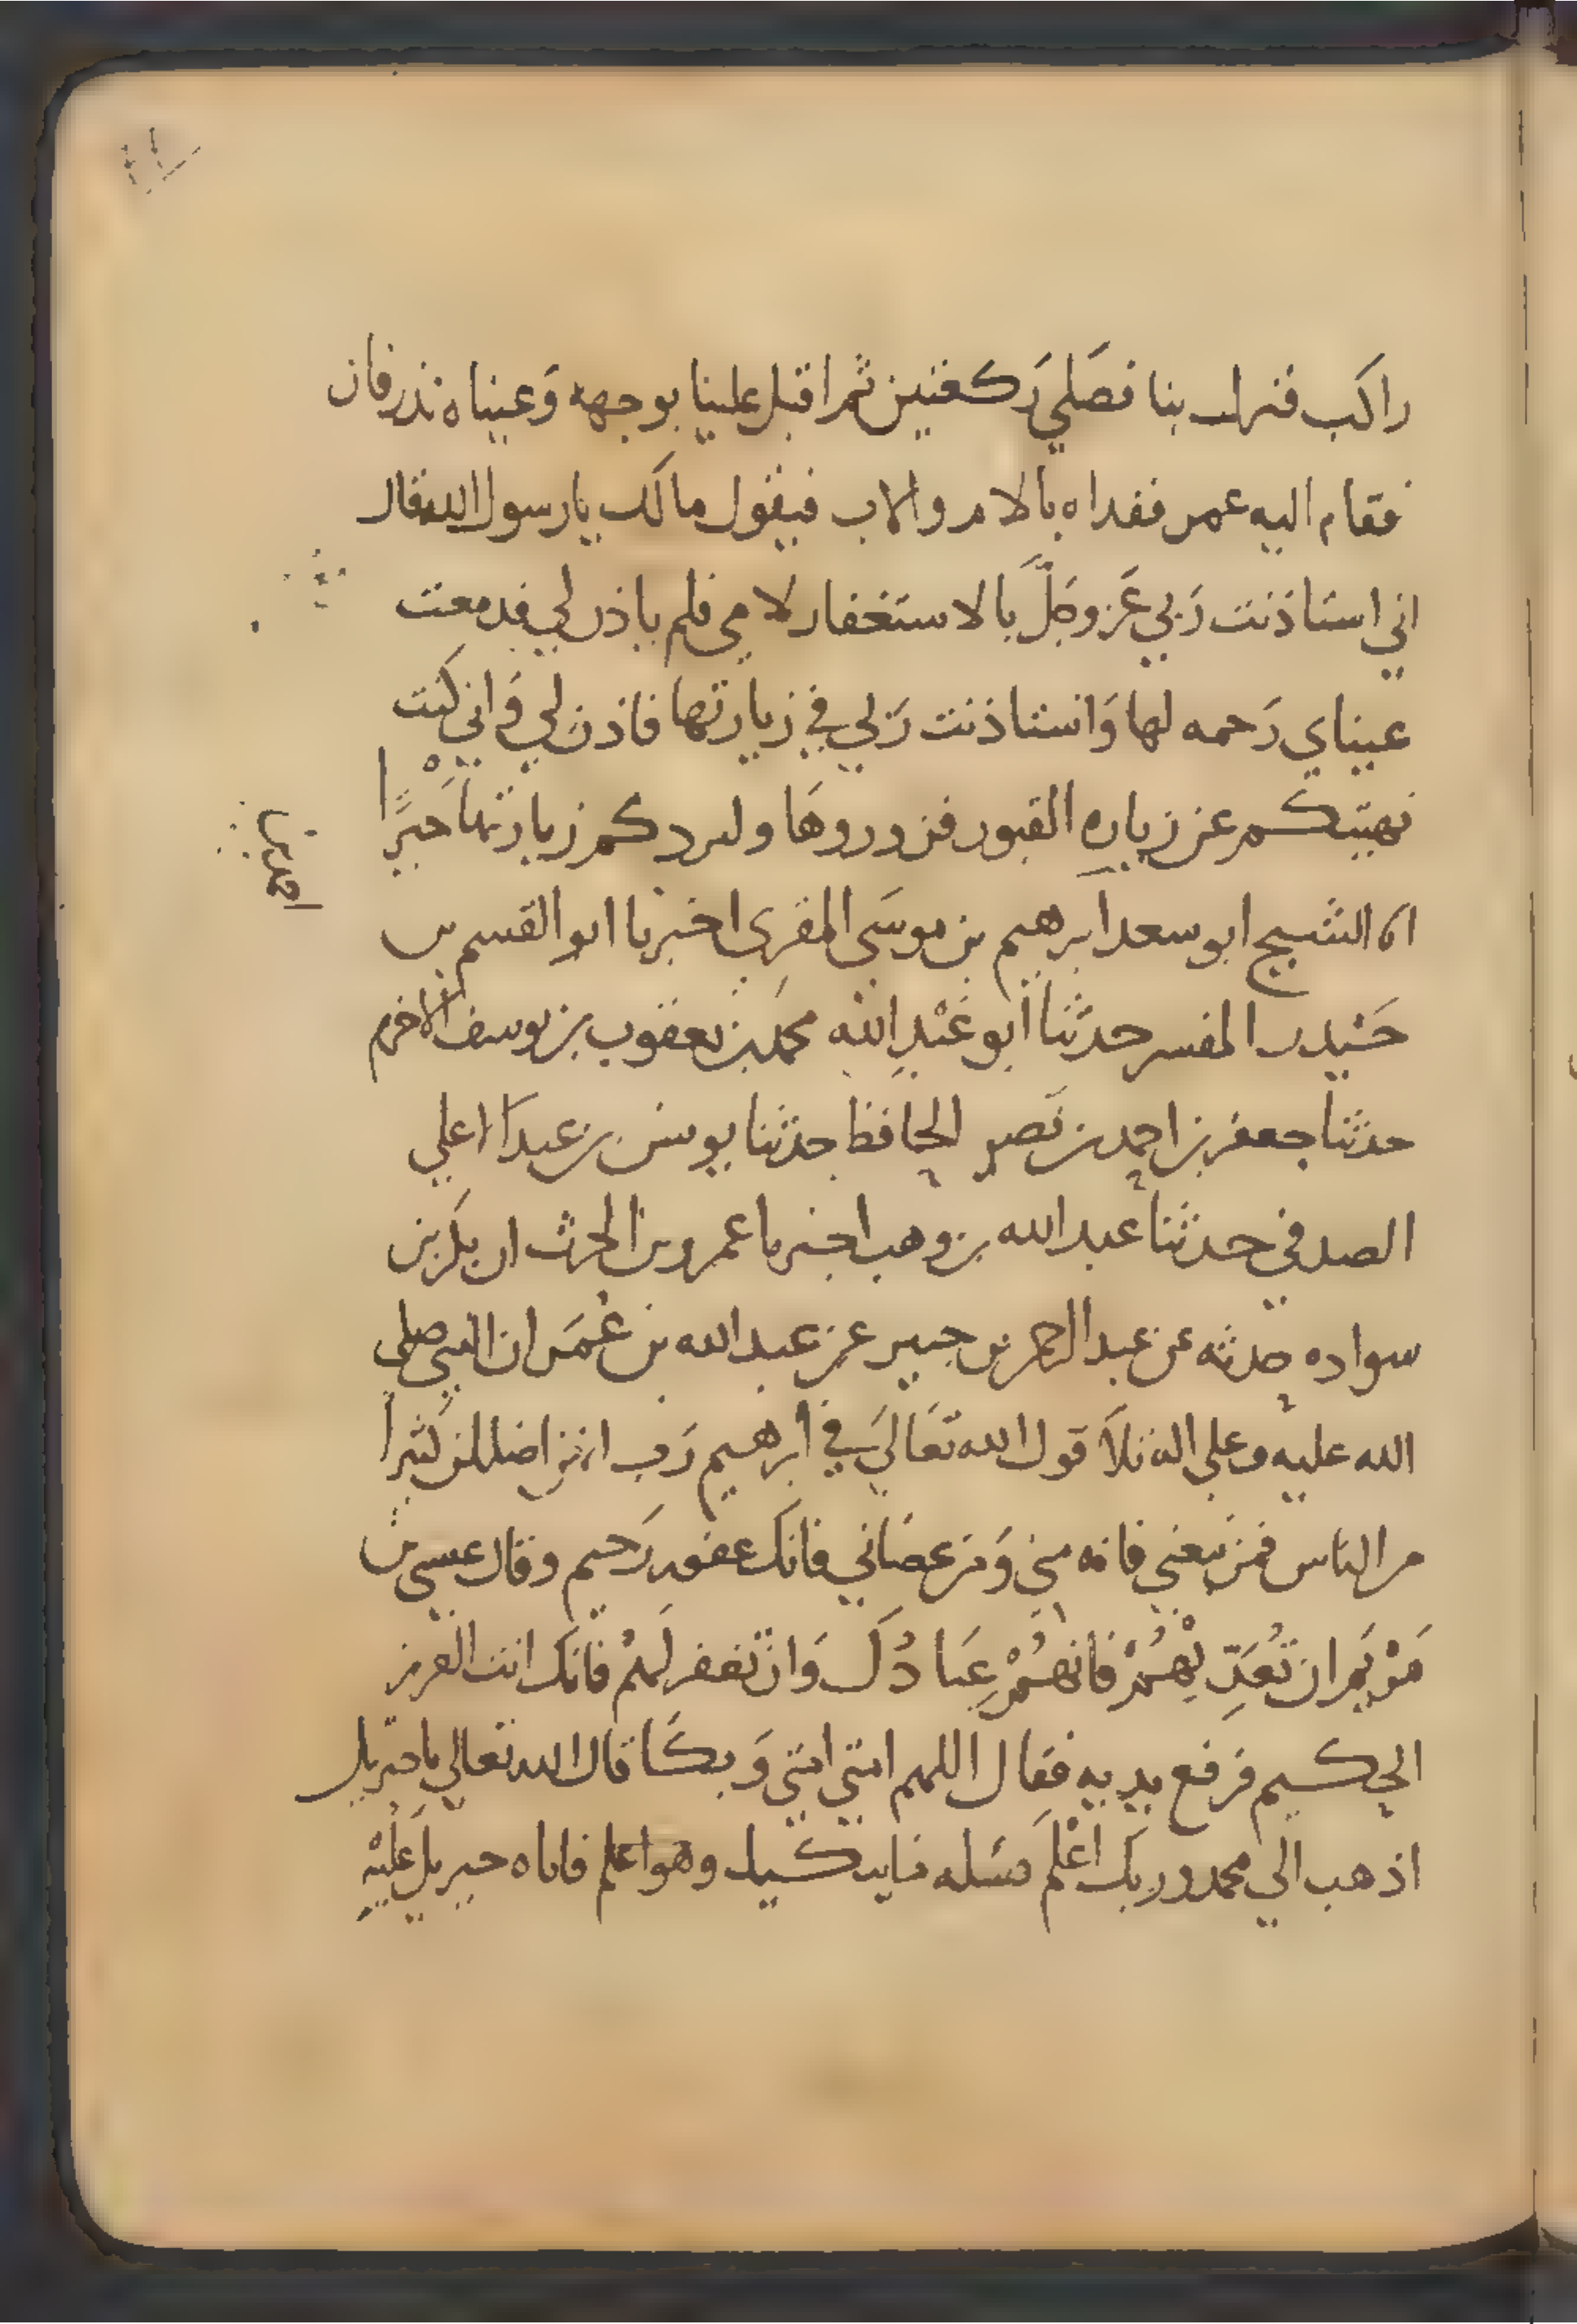 راكب فنزل بنا فصَلي رَكعتين ثم اقبل علينا بوجهه وَعيناه تذرفان
فقام اليه عمر ففداه بالام والاب فيقول مالك يا رسول الله فقال
اني استاذنت رَبي عَز وجَلَّ بالاستغفار لامي فلم ياذن لي فدمعت
عيناي رَحمه لها وَاستاذنت رَبي في زيارتها فاذن لي وَاني كنت
نهيتكم عن زياره القبور فزوروهَا ولىردكم زيارتها خَيرًا
انا الشيخ ابو سعد ابرهيم بن موسَى المقري اخبرنا ابو القسم بن
حَبْيب المفسر حدثنا أبو عَبْدِ الله محمد بن يعقوب بن يوسف الاخرم
حدثنا جعفر بن احمد بن نَصر الحافظ حدثنا يونس بن عبد الاعلي
الصدفي حدثنا عبد الله بن وهب اخبرنا عمرو بن الحرث ان بكر بن
سواده حدثه عن عبد الرحمن بن جبير عن عبد الله بن عُمَر ان النبي صلي
الله عليه وعلي اله تلاَ قول الله تعَاليَ في أبرهيم رَب انهن اضللن كثيرا
من الناس فمن تبعني فانه مني وَمن عصَاني فانك غفور رَحيم وقال عيسى بن
مَرْيَم ان تُعَذِّبْهُمْ فانهُمْ عِبَادُكَ وَان تغفر لَهمْ فانك انت العزيز
الحكيم فرفع يديه فقال اللهم امتي امتي وَبكَا قال الله تعالي يا جبريل
اذهب الي محمد وربك اعْلَم فسَله ما يبكيك وهو اعلم فاتاه جبريل عَليْهِ